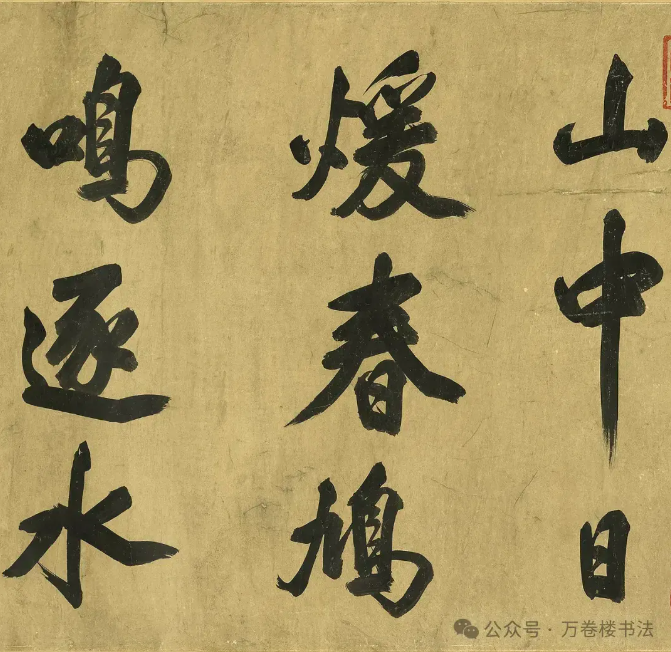 山中日
煖春鳩
鳴逐水
公众号 · 万卷楼书法